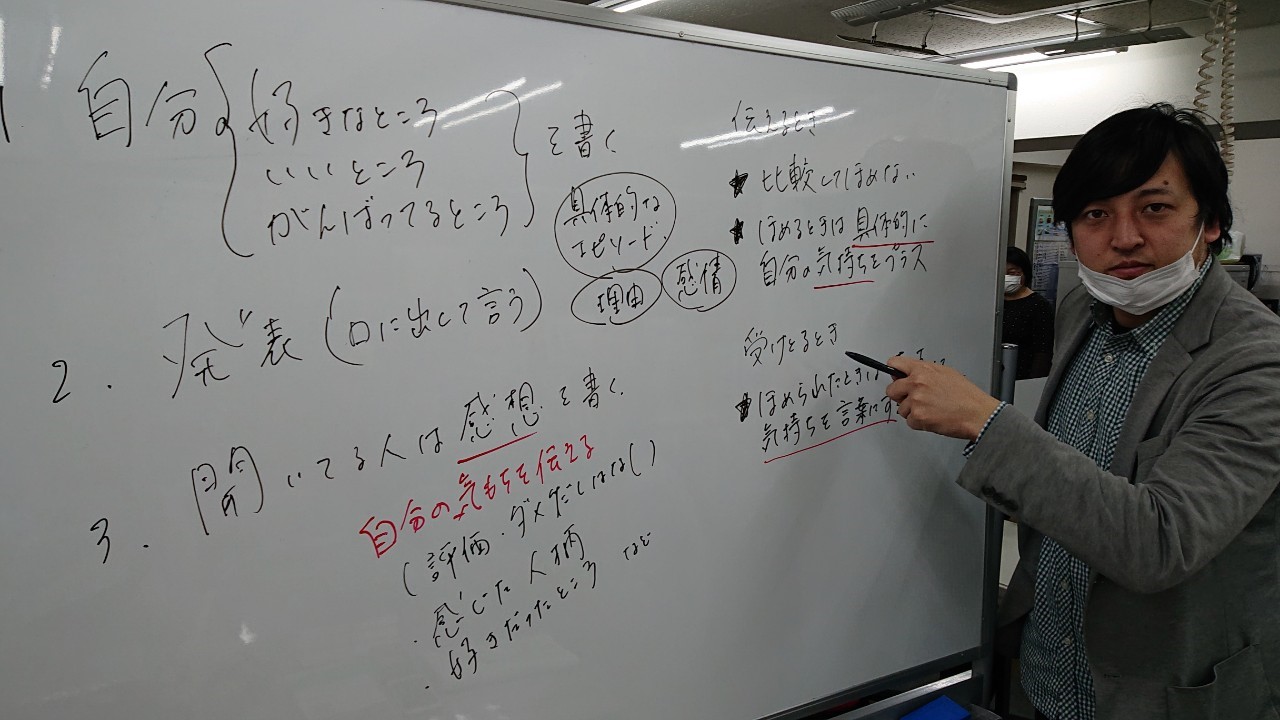 1 自分の{好きなところ
いいところ
がんばってるところ}を書く
具体的な
エピソード
理由
感情
2. 発表(口に出して言う)
3. 聞いてる人は感想を書く
自分の気もちを伝える
(評価・ダメだしはなし)
・感じた人柄
・好きだったところ など
伝えるとき
★ 比較してほめない
★ ほめるときは具体的に
自分の気持ちをプラス
受けとるとき
★ ほめられたときは
気持ちを言葉にす